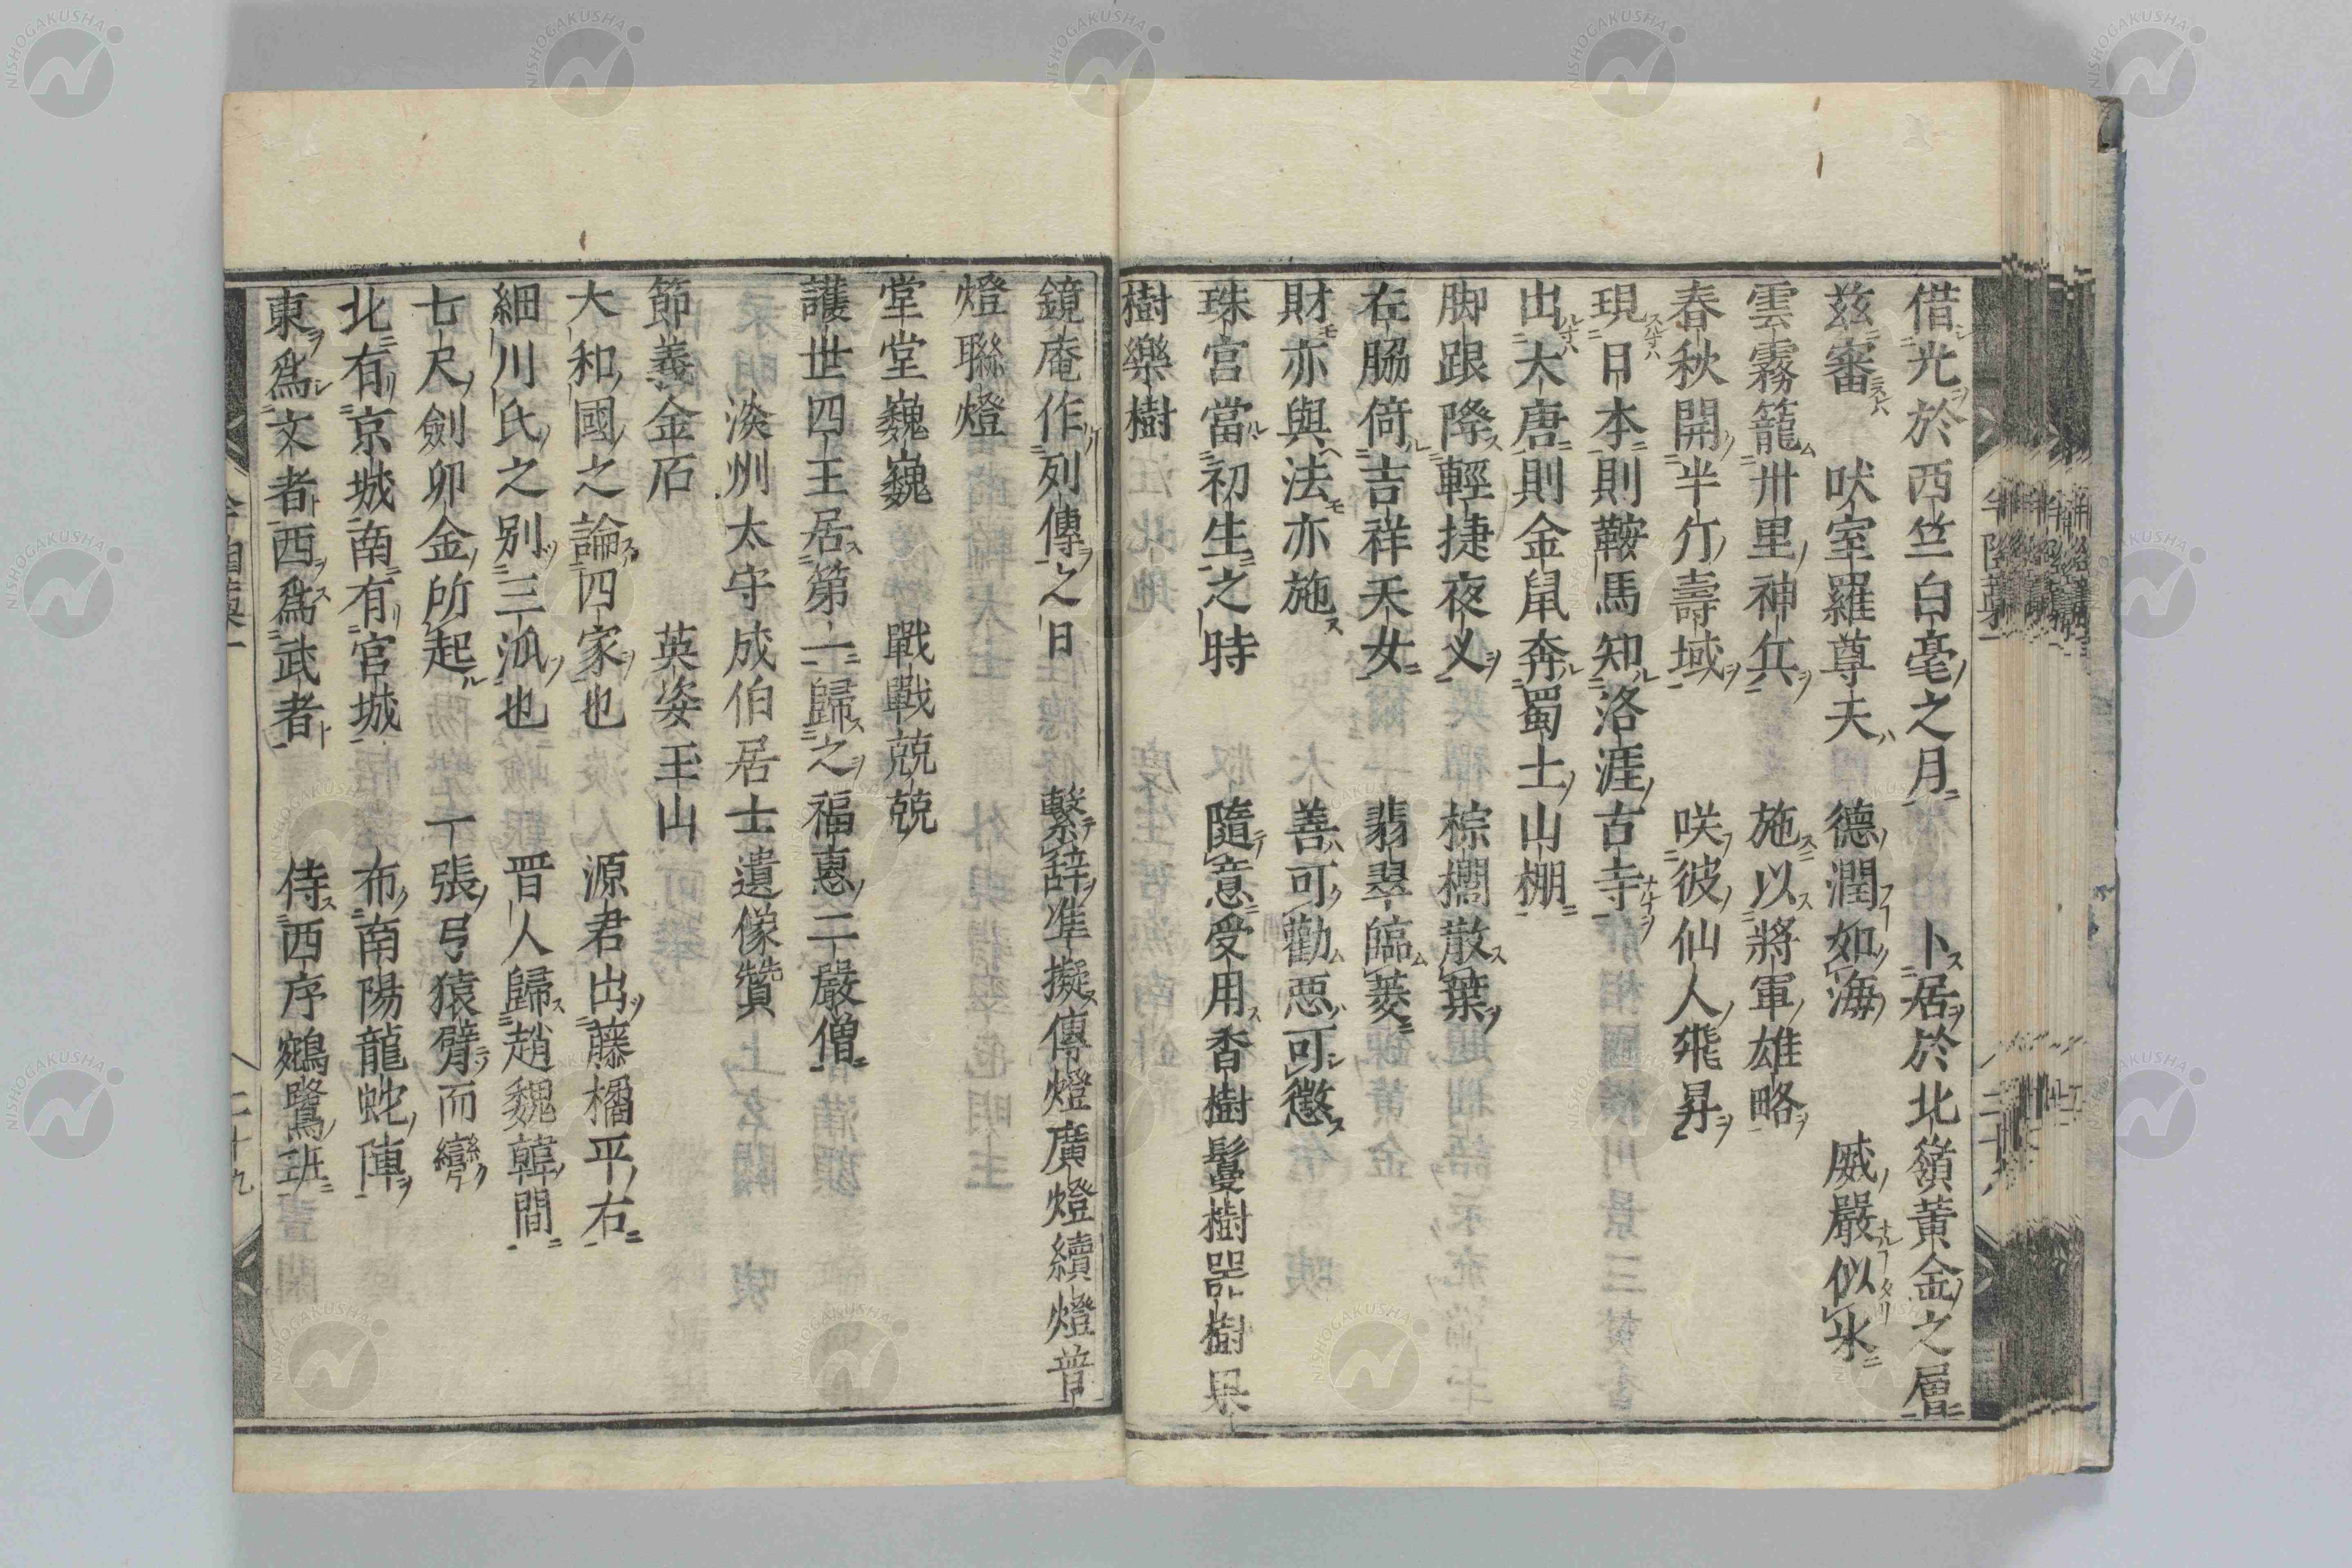 借光於西竺白毫之月　卜居於北嶺黃金之層
茲審　吠室羅尊天　德潤如海　威嚴似氷
雲霧籠卅里神兵　施以將軍雄略
春秋開半行壽域　咲彼仙人飛昇
現日本則鞍馬知洛涯古寺
出大唐則金鼠奔蜀土山棚
脚跟降輕捷夜叉　棕櫚散葉
在脇倚吉祥天女　翡翠臨菱
財亦與法亦施　善可勸惡可懲
珠宮當初生之時　隨意受用香樹鬘樹器樹果
樹樂樹
鏡庵作列傳之日　繫辭準擬傳燈廣燈續燈普
燈聯燈
堂堂巍巍　戰戰兢兢
護世四王居第一歸之福惠二嚴僧
淡州太守成伯居士遺像贊
節義金石　英姿玉山
大和國之論四家也　源君出藤橘平右
細川氏之別三派也　晋人歸趙魏韓間
七尺劍卯金所起　一張弓猿臂而彎
北有京城南有官城　布南陽龍蛇陣
東爲文者西爲武者　侍西序鵷鷺班
二十九